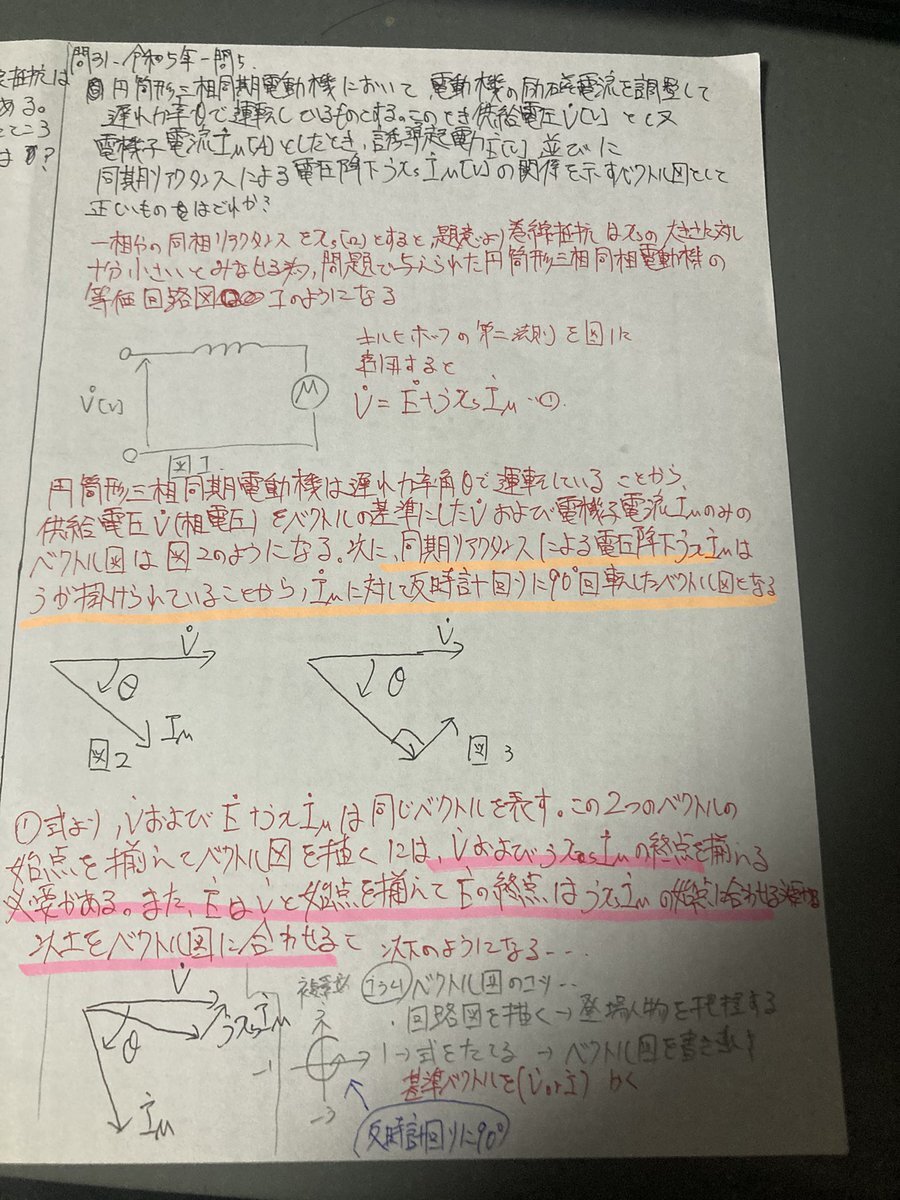 定抵抗は
ある。
ところ
は?
問31-令和5年-問5.
円筒形三相同期電動機において電動機の励磁電流を調整して
遅れ力率θで運転しているものとする。このとき供給電圧V̇[V]とし又
電機子電流İM[A]としたとき,誘導起電力Ė[V]並びに
同期リアクタンスによる電圧降下jxsİM[V]の関係を示すベクトル図として
正しいものをはどれか?
一相分の同相リアクタンスをxs[Ω]とすると,題意より巻線抵抗はxsの大きさに対し
十分小さいとみなせる為,問題で与えられた円筒形三相同相電動機の
等価回路図 1のようになる
キルヒホッフの第二法則を図1に
適用すると
V̇=Ė+jxsİM…①
V̇[V]
M
図1
円筒形三相同期電動機は遅れ力率角θで運転していることから、
供給電圧V̇(相電圧)をベクトルの基準にしたV̇および電機子電流İMのみの
ベクトル図は図2のようになる。次に、同期リアクタンスによる電圧降下jxsİMは
jが掛けられていることから,İMに対して反時計回りに90°回転したベクトル図となる
V̇
θ
İM
図2
V̇
θ
図3
①式より,V̇およびĖ+jxİMは同じベクトルを表す。この2つのベクトルの
始点を揃えてベクトル図を描くには、V̇およびjxsİMの終点を揃える
必要がある。また、ĖはV̇と始点を揃えてĖの終点はjxsİMの始点に合わせる
以上をベクトル図に合わせると 次のようになる…
V̇
jxsİM
θ
İM
複素数
j
1
-1
-j
ベクトル図のコツ…
・回路図を描く→登場人物を把握する
→式をたてる→ベクトル図を書き出す
基準ベクトルを(V̇orİ)かく
反時計回りに90°